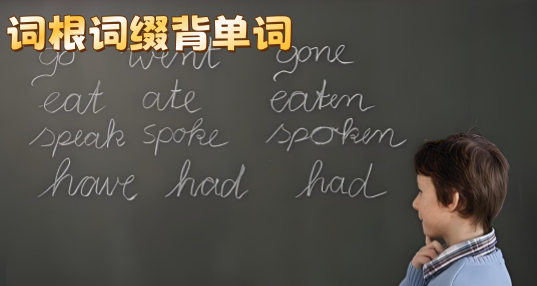 词根词缀背单词
go went gone
eat ate eaten
speak spoke spoken
have had had